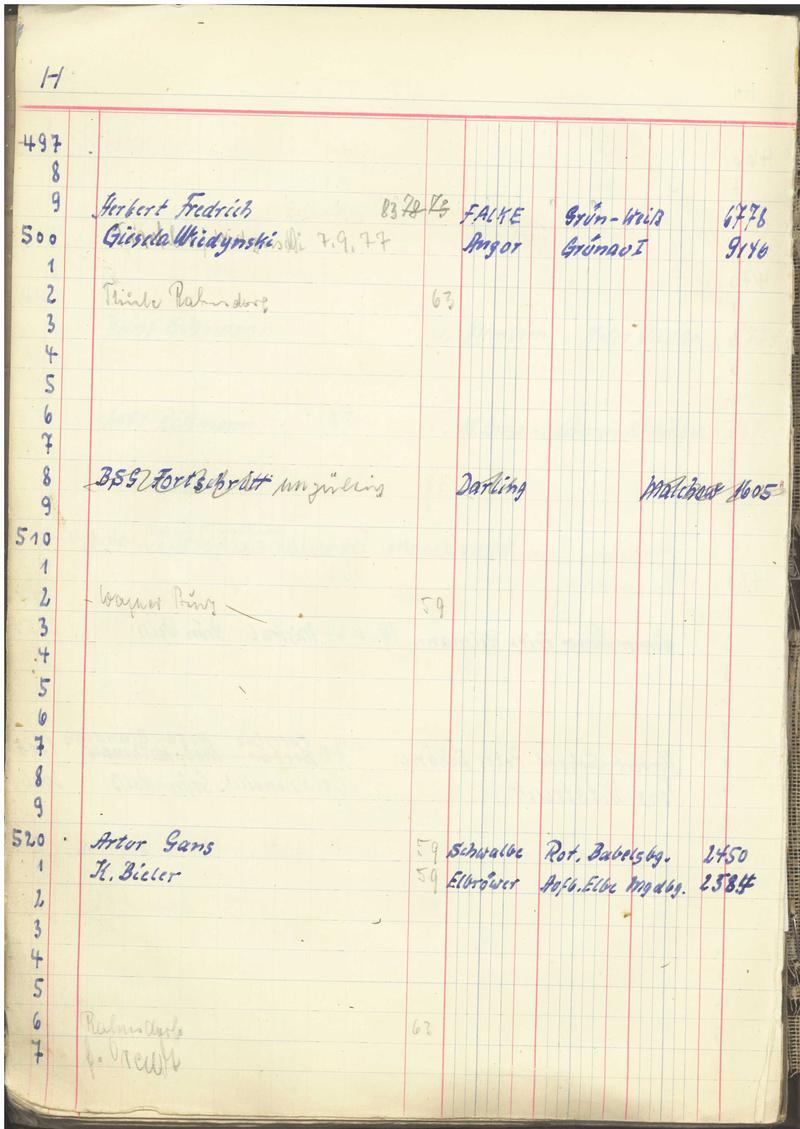 H
497
8
9 Herbert Fredrich 83 78 75 FALKE Grün-Weiß 6778
500 Gisela Wiedynski 7.9.77 Angor Grünau I 9140
1
2 Rahnsdorf 63
3
4
5
6
7
8 BSG Fortschritt ungültig Darling Malchow 1605
9
510
1
2 Wagner 59
3
4
5
6
7
8
9
520 Artur Gans 59 Schwalbe Rot. Babelsbg. 2450
1 K. Bieler 59 Elbröwer Aufb. Elbe Mgdbg. 2584
2
3
4
5
6 Rahnsdorf 62
7